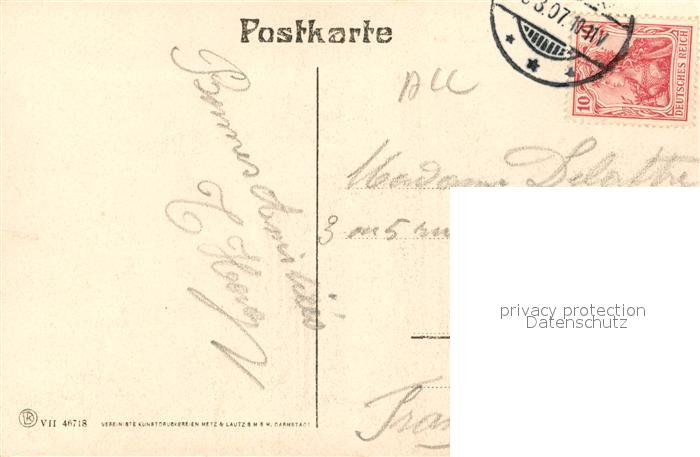 Postkarte
3.07.10-11V
10
DEUTSCHES REICH
Bonnes Amitiés
Madame Delattre
3 ou 5 
privacy protection
Datenschutz
VII 46718
VEREINIGTE KUNSTDRUCKEREIEN METZ & LAUTZ G.M.B.H. DARMSTADT